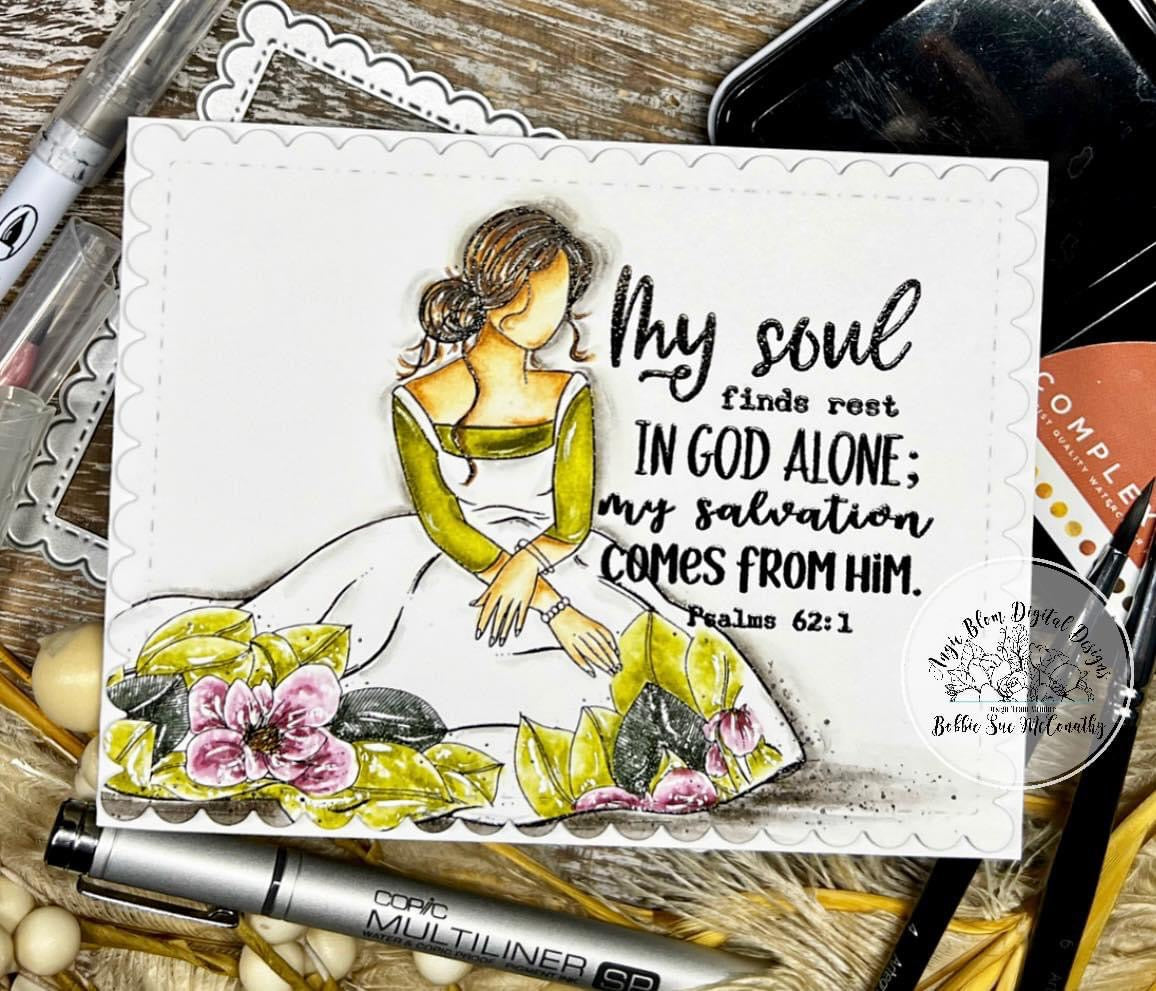 My soul
finds rest
IN GOD ALONE;
my salvation
COMES FROM HIM.
Psalms 62:1
COMPLE
IST QUALITY WATERC
Angie Blom Digital Designs
Design Team Member
Bobbie Sue McConathy
COPIC
MULTILINER
WATER & COPIC PROOF · PIGMENT INK
SP
6